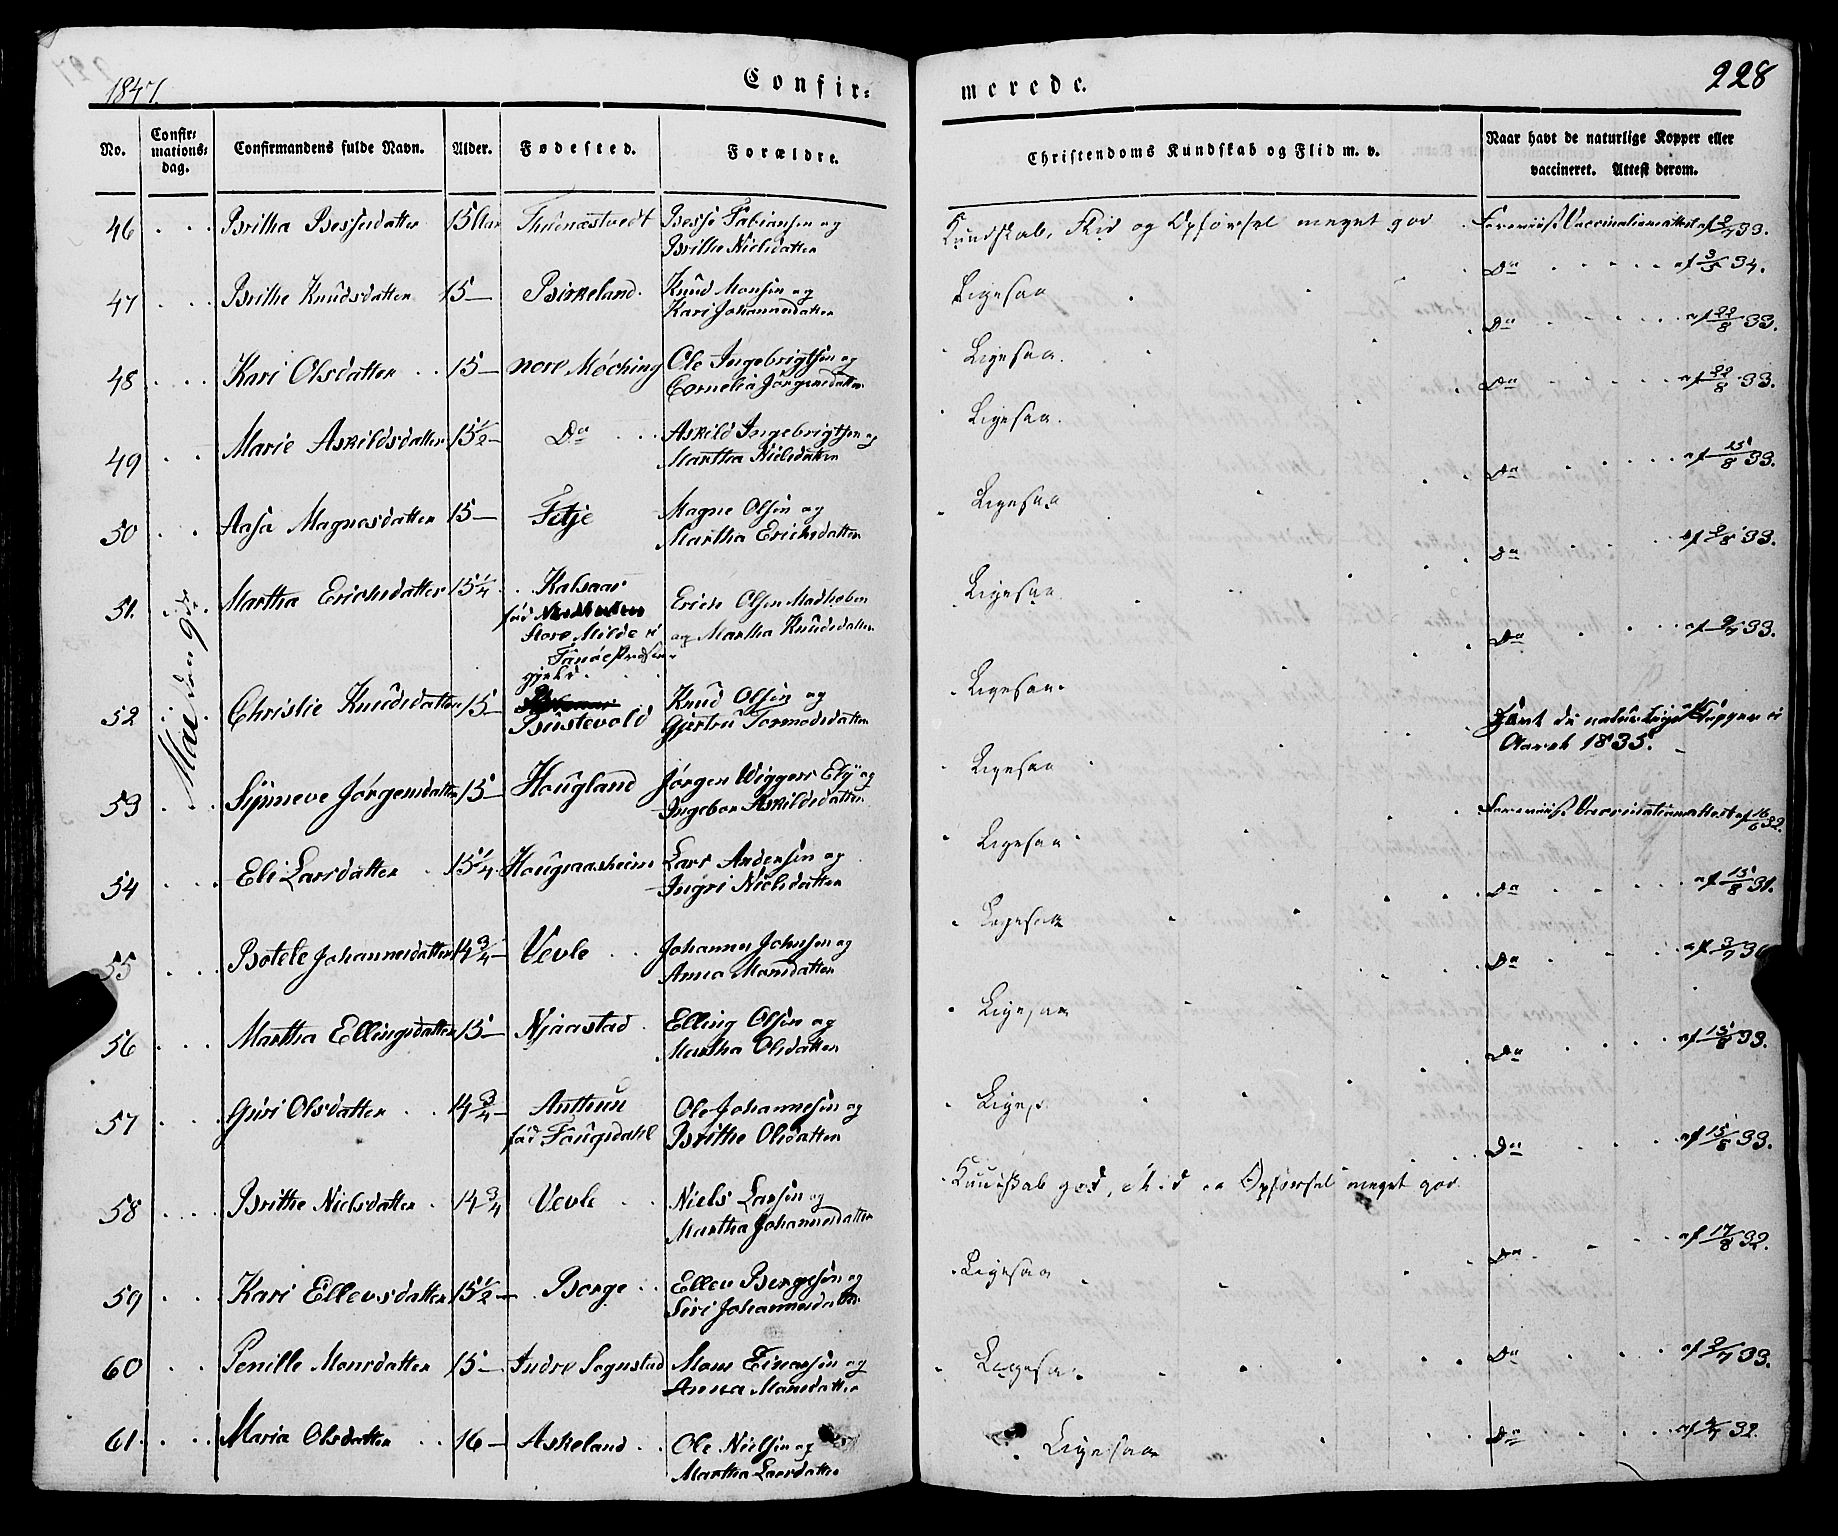 1847.
Confir-
merede.
228
No.
Confir-
mations-
dag.
Confirmandens fulde Navn.
Alder.
Fødested.
Forældre.
Christendoms Kundskab og Flid m. v.
Naar havt de naturlige Kopper eller
vaccineret. Attest derom.
Mai den 9de
46 Britha Bessesdatter 15 Aar Besse Fabiansen og
Brithe Nielsdatter
Kundskab, Flid og Opførsel meget god Foreviist Vaccinationsattest af 33.
47 Brithe Knudsdatter 15 — Birkeland. Knud Monsen og
Kari Johannesdatter
Ligesaa Do af 3/5 34.
48 Kari Olsdatter 15 — nore Møching Ole Ingebrigtsen og
Cornelia Jørgensdatter
Ligesaa. Do af 22/8 33.
49 Marie Askildsdatter 15 1/2 — Do Askild Ingebrigtsen og
Martha Nielsdatter
Ligesaa. Do af 22/8 33.
50 Aasa Magnesdatter 15 — Fetje Magne Olsen og
Martha Erichsdatter
Ligesaa Do af 15/8 33.
51. Martha Erichsdatter 15 1/4 Kalsaas
fød
Store Milde i
Fanøe Præste-
gjeld.
Erich Olsen Madheben
og Martha Knudsdatter
Ligesaa. Do 33.
52 Christie Knudsdatter 15 —
Bustevold
Knud Olsen og
Gjertru Tormodsdatter
Ligesaa. Do 33.
53 Synneve Jørgensdatter 15 — Hougland Jørgen Wiggers Ely og
Ingebor Askildsdatter
Ligesaa Havt de naturlige Kopper i
Aaret 1835.
54 Eli Larsdatter 15 1/4 Hougaasheim Lars Andersen og
Ingri Nielsdatter
Ligesaa Foreviist Vaccinationsattest af 16/6 32.
55 Botele Johannesdatter 14 3/4 Vevle Johannes Johnsen og
Anna Monsdatter
Ligesaa Do af 15/8 31.
56 Martha Ellingsdatter 15 — Njaastad Elling Olsen og
Martha Olsdatter
Ligesaa Do af 3/7
57 Guri Olsdatter 14 3/4 —
fød Fougsdahl
Ole Johannesen og
Brithe Olsdatter
Liges Do af 15/8 33.
58 Brithe Nielsdatter 14 3/4 Vevle Niels Larsen og
Martha Johannesdatter
Kundskab god, Flid og Opførsel meget god Do af 15/8 33.
59 Kari Ellevsdatter 15 1/2 — Borge Ellev Borgesen og
Siri Johannesdatter
Ligesaa Do af 17/8 32.
60 Pernille Monsdatter 15 — Indre Sognstad Mons Einarsen og
Anna Monsdatter
Ligesaa Do 33.
61. Maria Olsdatter 16 — Askeland Ole Nielsen og
Martha Larsdatter
Ligesaa Do 32.